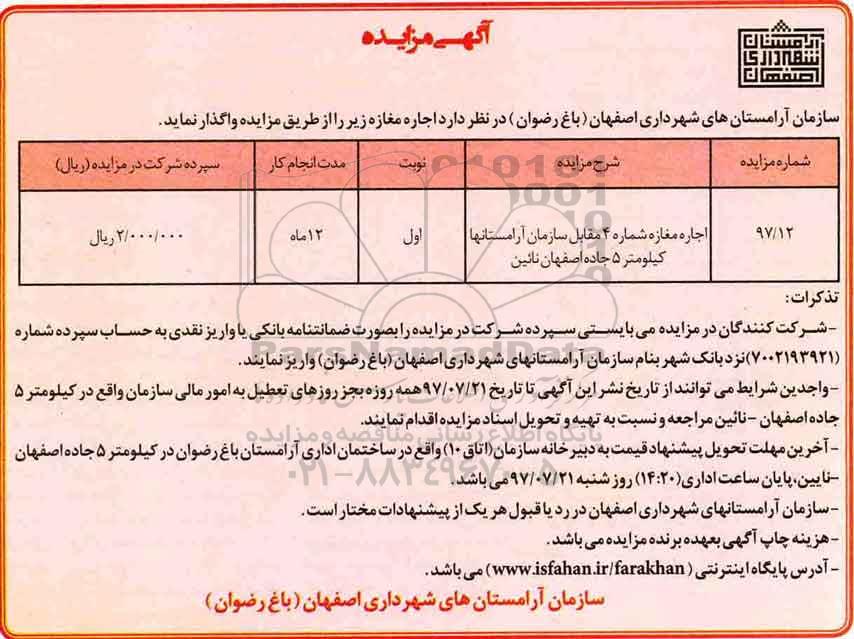 آگهی مزایده
آرامستان
شهرداری
اصفهان
سازمان آرامستان های شهرداری اصفهان (باغ رضوان) در نظر دارد اجاره مغازه زیر را از طریق مزایده واگذار نماید.
شماره مزایده	شرح مزایده	نوبت	مدت انجام کار	سپرده شرکت در مزایده (ریال)
۹۷/۱۲	اجاره مغازه شماره ۴ مقابل سازمان آرامستانها	اول	۱۲ماه	۲/۰۰۰/۰۰۰ ریال
کیلومتر ۵ جاده اصفهان نائین
تذکرات:
-شرکت کنندگان در مزایده می بایستی سپرده شرکت در مزایده را بصورت ضمانتنامه بانکی یا واریز نقدی به حساب سپرده شماره
(۷۰۰۲۱۹۳۹۲۱) نزد بانک شهر بنام سازمان آرامستانهای شهرداری اصفهان (باغ رضوان) واریز نمایند.
-واجدین شرایط می توانند از تاریخ نشر این آگهی تا تاریخ ۹۷/۰۷/۲۱ همه روزه بجز روزهای تعطیل به امور مالی سازمان واقع در کیلومتر ۵
جاده اصفهان - نائین مراجعه و نسبت به تهیه و تحویل اسناد مزایده اقدام نمایند.
- آخرین مهلت تحویل پیشنهاد قیمت به دبیرخانه سازمان (اتاق ۱۰) واقع در ساختمان اداری آرامستان باغ رضوان در کیلومتر ۵ جاده اصفهان
-نایین، پایان ساعت اداری (۱۴:۲۰) روز شنبه ۹۷/۰۷/۲۱ می باشد.
-سازمان آرامستانهای شهرداری اصفهان در رد یا قبول هر یک از پیشنهادات مختار است.
-هزینه چاپ آگهی بعهده برنده مزایده می باشد.
- آدرس پایگاه اینترنتی (www.isfahan.ir/farakhan) می باشد.
سازمان آرامستان های شهرداری اصفهان (باغ رضوان)
ParsNamadData
پایگاه اطلاع رسانی مناقصه و مزایده
۰۲۱-۸۸۳۴۹۶۷۰-۵